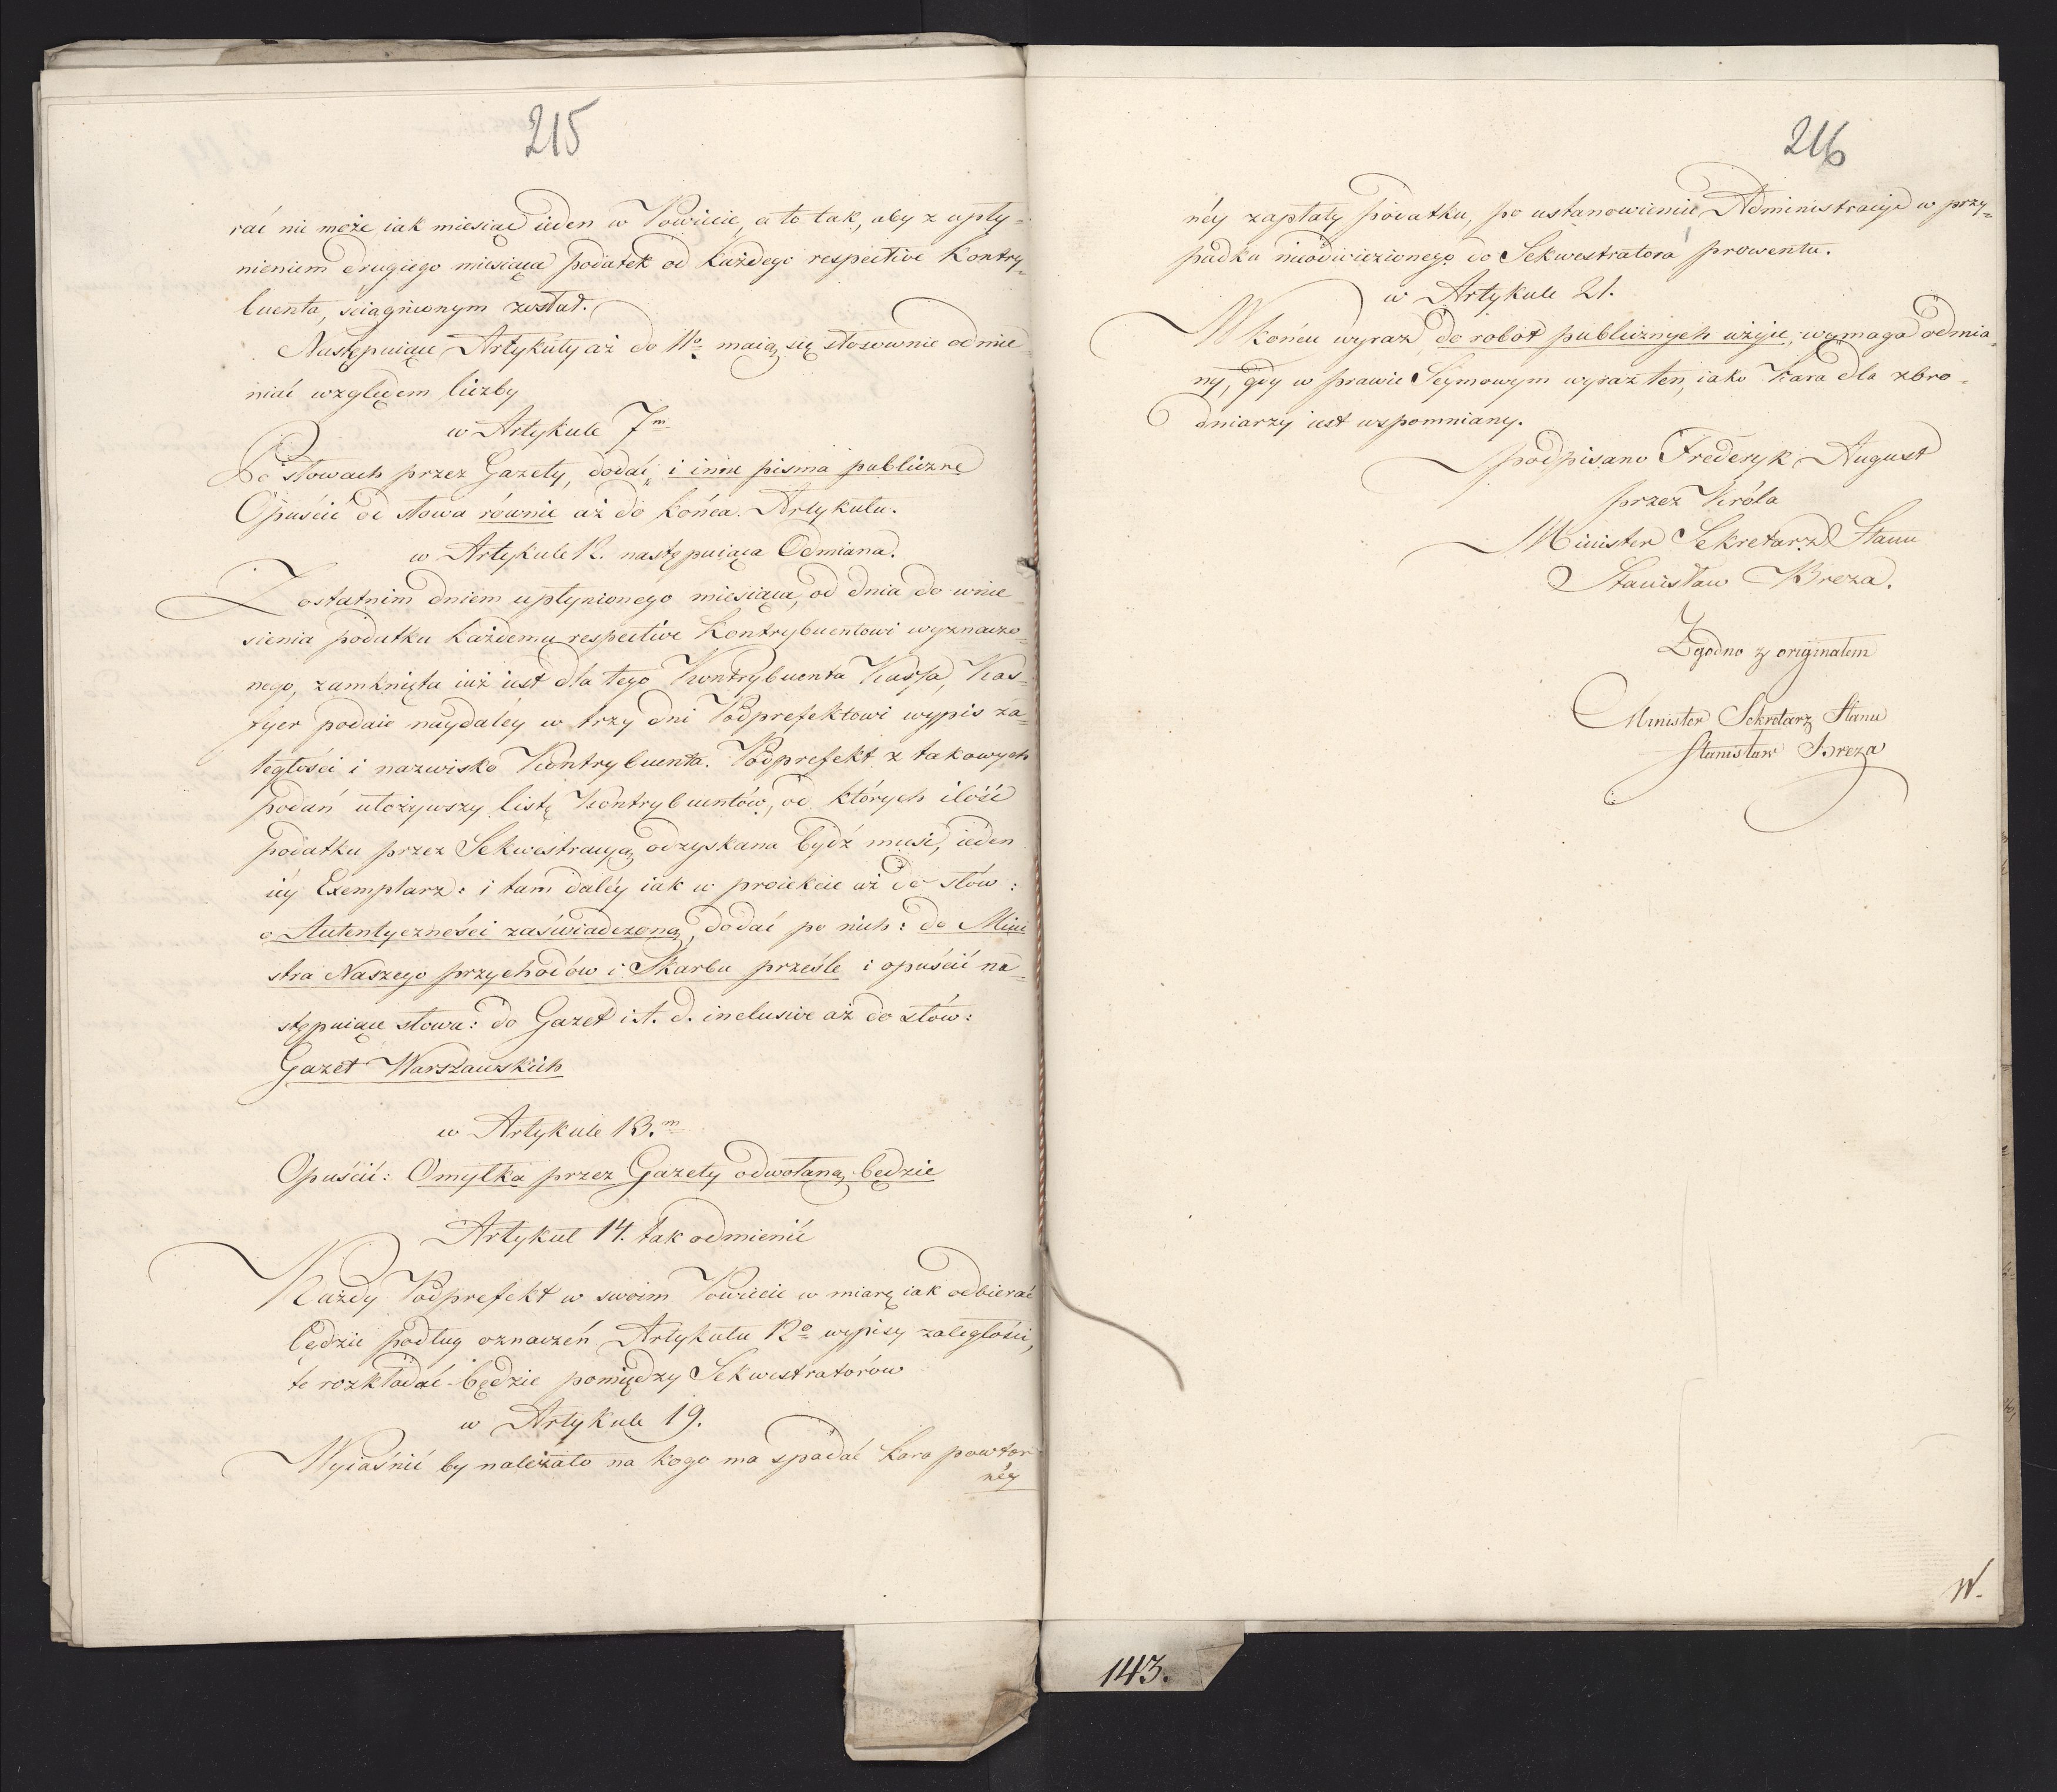 215
rać nie może iak miesiąc ieden w Powiecie, a to tak, aby z upły=
nieniem drugiego miesiąca podatek od każdego respective Kontry=
buenta, sciągnionym został.
Następuiące Artykuły aż do 11o maią się stosownie odmie=
niać względem liczby
w Artykule 7m
Po słowach przez Gazety, dodać „ i inne pisma publiczne
Opuścić od słowa równie aż do końca Artykułu.
w Artykule 12. następuiąca Odmiana.
Z ostatnim dniem upłynionego miesiąca, od dnia do wnie=
sienia podatku każdemu respective Kontrybuentowi wyznaczo=
nego, zamknięta iuż iest dla tego Kontrybuenta Kassa, Kas=
syer podaie naydaléy w trzy dni Podprefektowi wypis za=
ległości i nazwisko Kontrybuenta. Podprefekt z takowych
podań ułożywszy listę Kontrybuentów, od których ilość
podatku przez Sekwestracyą odzyskana bydź musi, ieden
iéy Exemplarz: i tam daléy iak w proiekcie aż do słów:
o Autentyczności zaświadczoną, dodać po nich: do Mini
stra Naszego przychodów i Skarbu prześle i opuścić na=
stępuiące słowa: do Gazet i t. d. inclusive aż do słów:
Gazet Warszawskich
w Artykule 13.m
Opuścić: Omyłka przez Gazety odwołaną będzie
Artykuł 14. tak odmienić
Każdy Podprefekt w swoim Powiecie w miarę iak odbierać
będzie podług oznaczeń Artykułu 12o wypisy zaległości,
te rozkładać będzie pomiędzy Sekwestratorów
w Artykule 19.
Wyiaśnić by należało na kogo ma spadać kara powtor
néy
216
néy zapłaty podatku, po ustanowieniu Administracyi w przy=
padku nieodwiezionego do Sekwestratora prowentu.
w Artykule 21.
W końcu wyraz do robot publicznych użyie, wymaga odmia=
ny, gdy w prawie Seymowym wyraz ten, iako kara dla zbro=
dniarzy iest wspomniany.
podpisano Frederyk August
przez Króla
Minister Sekretarz Stanu
Stanisław Breza.
Zgodno z originałem
Minister Sekretarz Stanu
Stanisław Breza
W.
143.